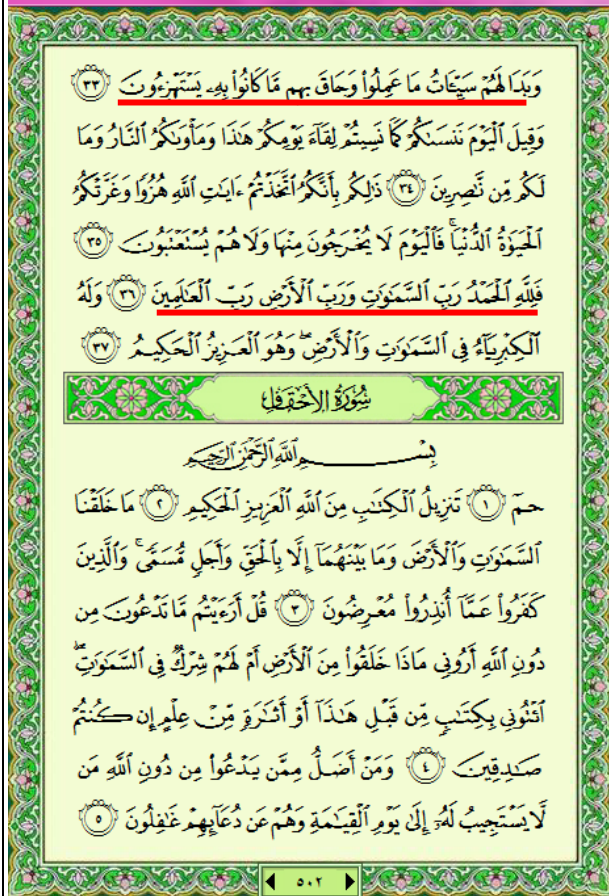 وَبَدَا لَهُمْ سَيِّـَٔاتُ مَا عَمِلُوا۟ وَحَاقَ بِهِم مَّا كَانُوا۟ بِهِۦ يَسْتَهْزِءُونَ ﴿٣٣﴾
وَقِيلَ ٱلْيَوْمَ نَنسَىٰكُمْ كَمَا نَسِيتُمْ لِقَآءَ يَوْمِكُمْ هَٰذَا وَمَأْوَىٰكُمُ ٱلنَّارُ وَمَا
لَكُم مِّن نَّٰصِرِينَ ﴿٣٤﴾ ذَٰلِكُم بِأَنَّكُمُ ٱتَّخَذْتُمْ ءَايَٰتِ ٱللَّهِ هُزُوًا وَغَرَّتْكُمُ
ٱلْحَيَوٰةُ ٱلدُّنْيَا ۚ فَٱلْيَوْمَ لَا يُخْرَجُونَ مِنْهَا وَلَا هُمْ يُسْتَعْتَبُونَ ﴿٣٥﴾
فَلِلَّهِ ٱلْحَمْدُ رَبِّ ٱلسَّمَٰوَٰتِ وَرَبِّ ٱلْأَرْضِ رَبِّ ٱلْعَٰلَمِينَ ﴿٣٦﴾ وَلَهُ
ٱلْكِبْرِيَآءُ فِى ٱلسَّمَٰوَٰتِ وَٱلْأَرْضِ ۖ وَهُوَ ٱلْعَزِيزُ ٱلْحَكِيمُ ﴿٣٧﴾
سُورَةُ الأَحْقَافِ
بِسْمِ ٱللَّهِ ٱلرَّحْمَٰنِ ٱلرَّحِيمِ
حمٓ ﴿١﴾ تَنزِيلُ ٱلْكِتَٰبِ مِنَ ٱللَّهِ ٱلْعَزِيزِ ٱلْحَكِيمِ ﴿٢﴾ مَا خَلَقْنَا
ٱلسَّمَٰوَٰتِ وَٱلْأَرْضَ وَمَا بَيْنَهُمَآ إِلَّا بِٱلْحَقِّ وَأَجَلٍ مُّسَمًّى ۚ وَٱلَّذِينَ
كَفَرُوا۟ عَمَّآ أُنذِرُوا۟ مُعْرِضُونَ ﴿٣﴾ قُلْ أَرَءَيْتُم مَّا تَدْعُونَ مِن
دُونِ ٱللَّهِ أَرُونِى مَاذَا خَلَقُوا۟ مِنَ ٱلْأَرْضِ أَمْ لَهُمْ شِرْكٌ فِى ٱلسَّمَٰوَٰتِ ۖ
ٱئْتُونِى بِكِتَٰبٍ مِّن قَبْلِ هَٰذَآ أَوْ أَثَٰرَةٍ مِّنْ عِلْمٍ إِن كُنتُمْ
صَٰدِقِينَ ﴿٤﴾ وَمَنْ أَضَلُّ مِمَّن يَدْعُوا۟ مِن دُونِ ٱللَّهِ مَن
لَّا يَسْتَجِيبُ لَهُۥٓ إِلَىٰ يَوْمِ ٱلْقِيَٰمَةِ وَهُمْ عَن دُعَآئِهِمْ غَٰفِلُونَ ﴿٥﴾
٥٠٢